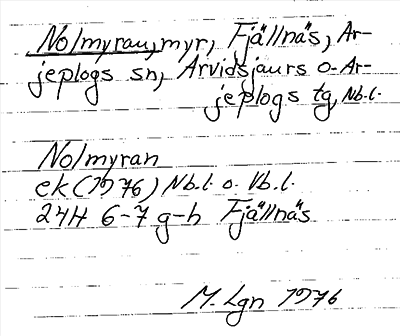 Nolmyran, myr, Fjällnäs, Ar-
jeplogs sn, Arvidsjaurs o. Ar-
jeplogs tg, Nb.l.
Nolmyran
ek (1976) Nb.l. o. Vb.l.
24H 6-7 g-h Fjällnäs
M. Lgn 1976